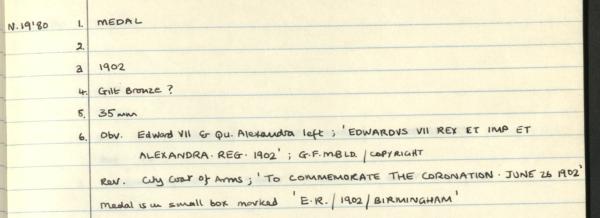 N.19'80 1. MEDAL
2.
3 1902
4. Gilt Bronze ?
5. 35 mm
6. Obv. Edward VII & Qu. Alexandra left ; 'EDWARDVS VII REX ET IMP ET
ALEXANDRA. REG. 1902' ; G.F.MBLD. / COPYRIGHT
Rev. City Coat of Arms ; 'TO COMMEMORATE THE CORONATION. JUNE 26 1902'
Medal is in small box marked 'E.R. / 1902 / BIRMINGHAM'